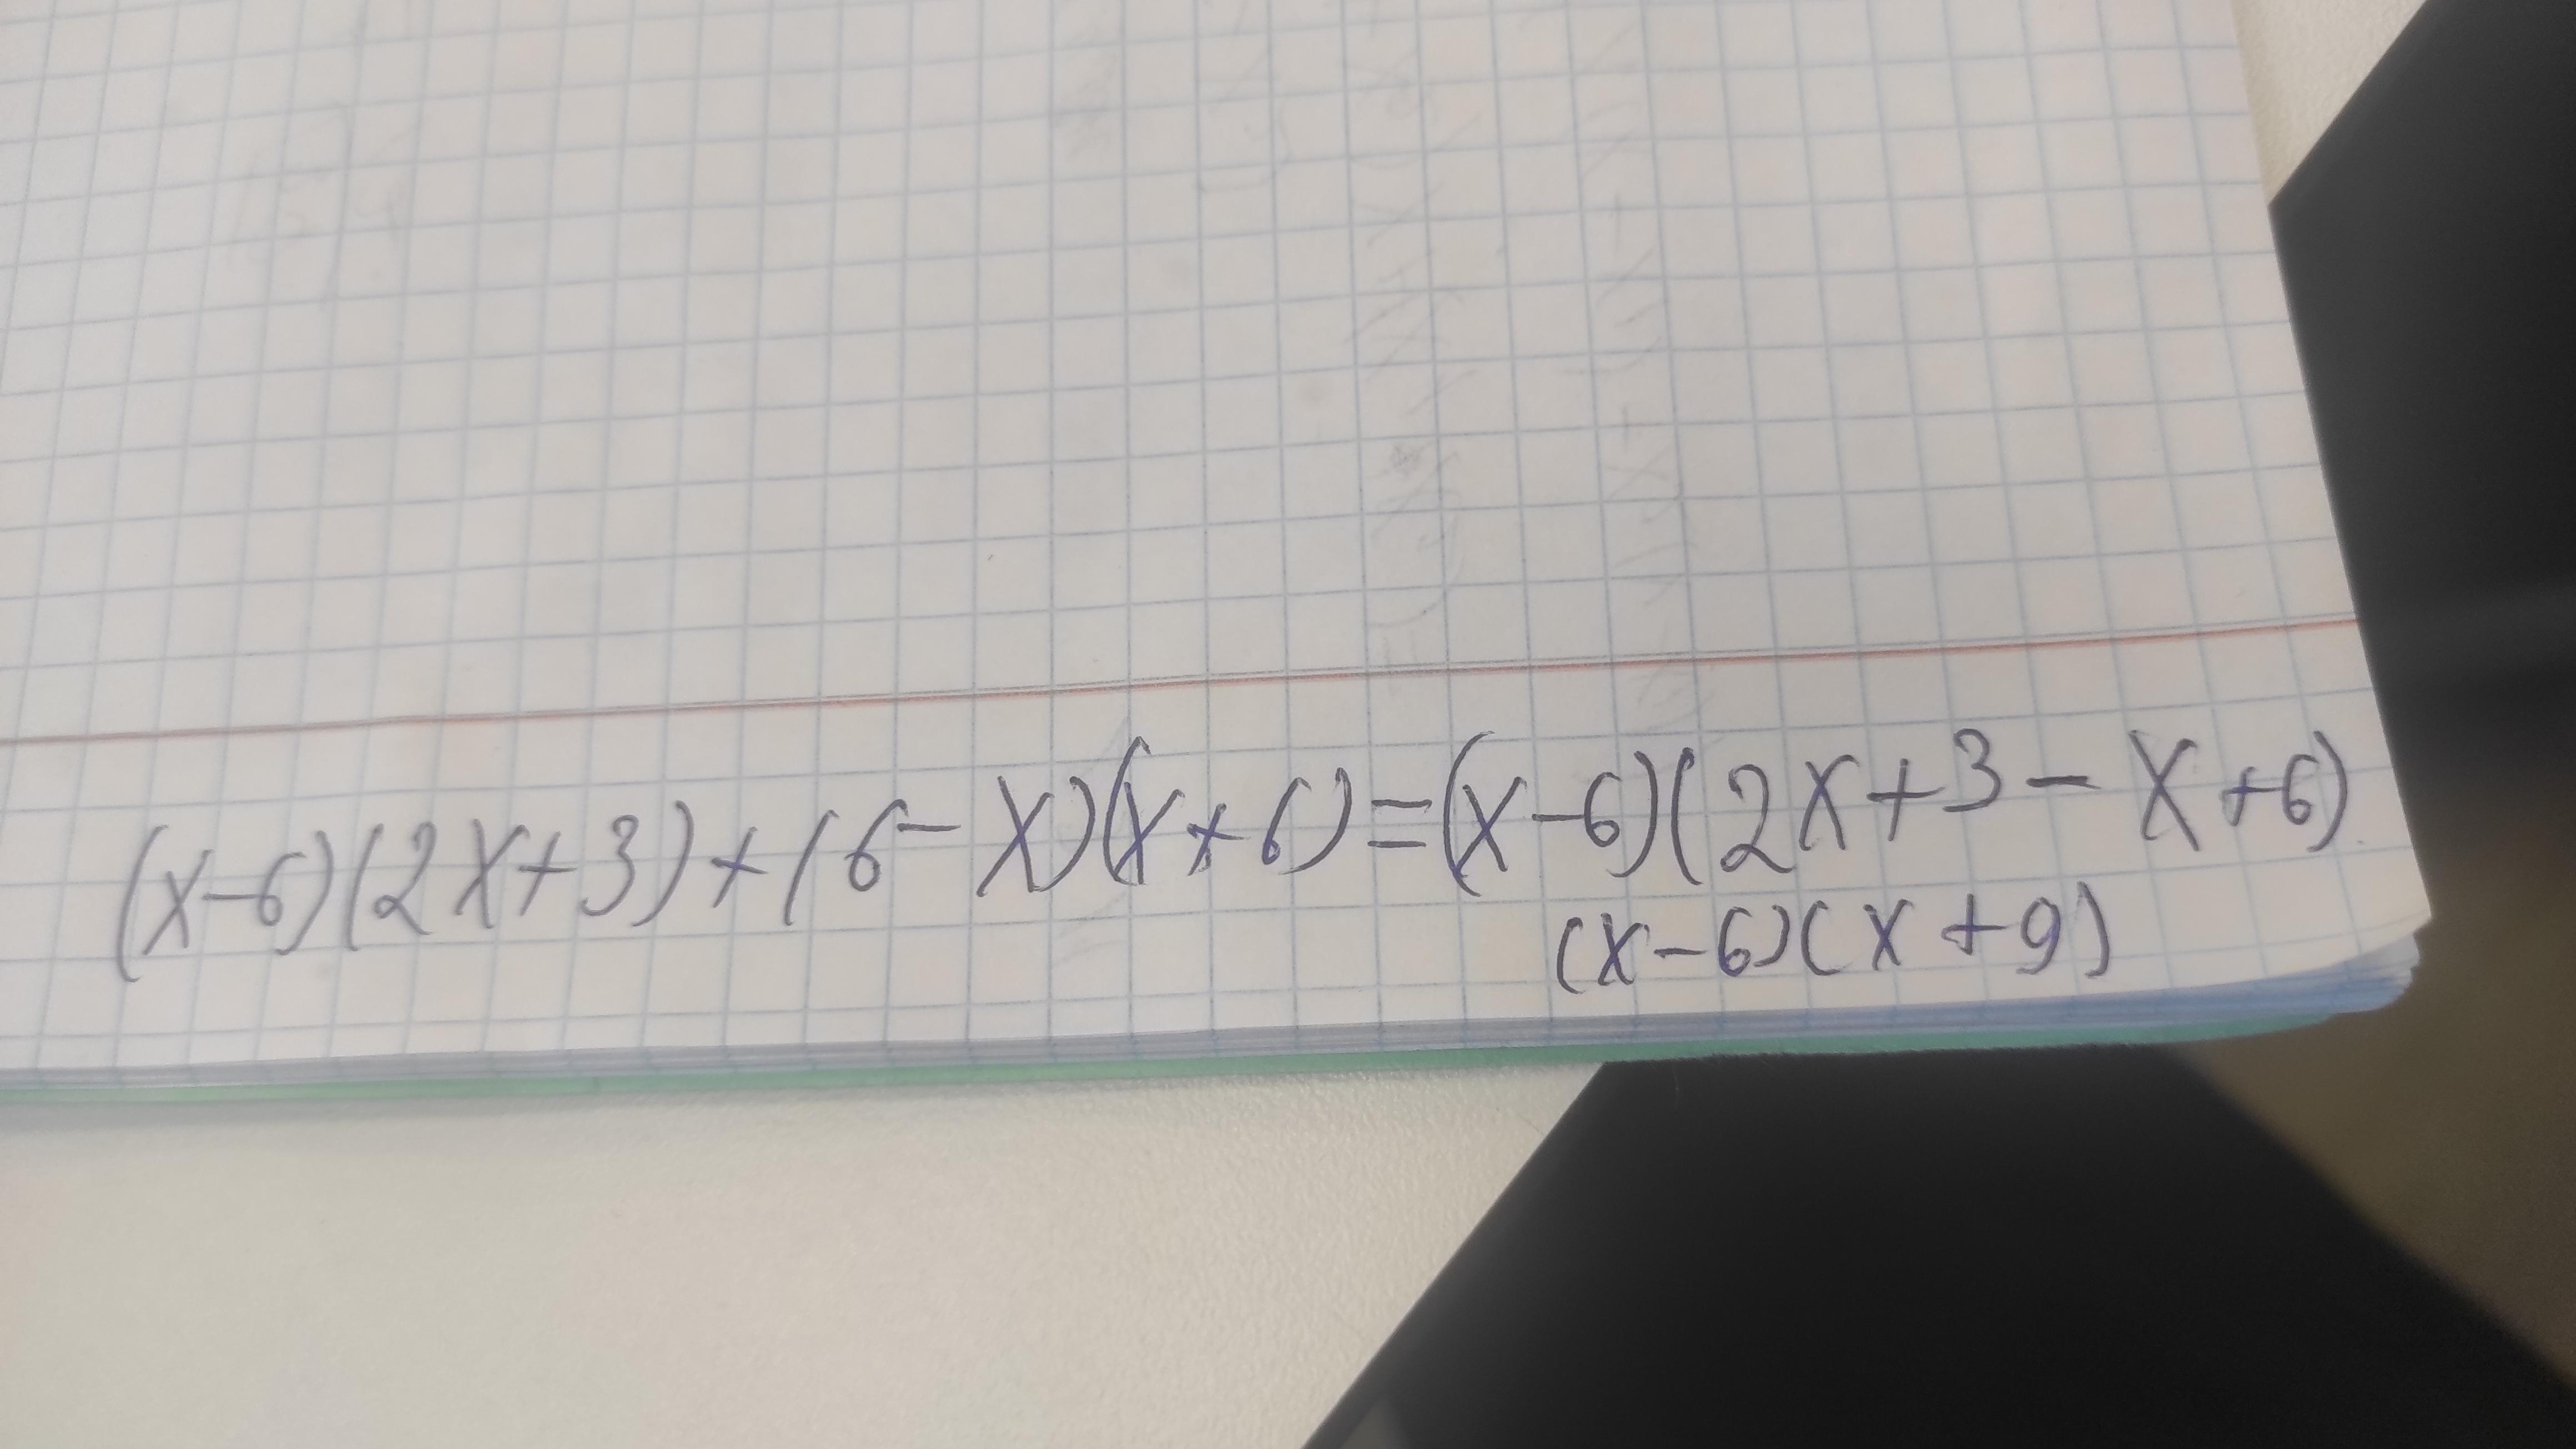 (x-6)(2x+3)+(6-x)(x+6)=(x-6)(2x+3-x+6)
(x-6)(x+9)